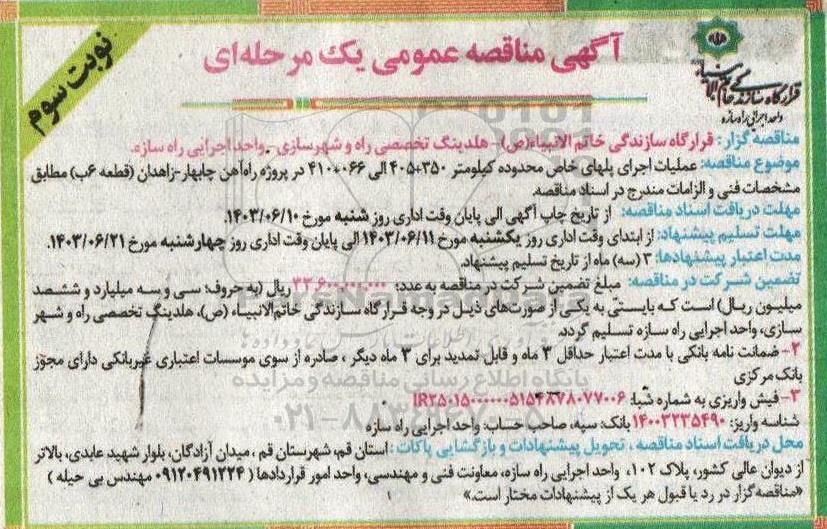 آگهی مناقصه عمومی یک مرحله‌ای
نوبت سوم
قرارگاه سازندگی خاتم الانبیاء
واحد اجرایی راه سازه
مناقصه گزار: قرارگاه سازندگی خاتم الانبیاء(ص) - هلدینگ تخصصی راه و شهرسازی - واحد اجرایی راه سازه.
موضوع مناقصه: عملیات اجرای پلهای خاص محدوده کیلومتر 350+405 الی 066+410 در پروژه راه‌آهن چابهار-زاهدان (قطعه 6ب) مطابق
مشخصات فنی و الزامات مندرج در اسناد مناقصه.
مهلت دریافت اسناد مناقصه: از تاریخ چاپ آگهی الی پایان وقت اداری روز شنبه مورخ 1403/06/10.
مهلت تسلیم پیشنهاد: از ابتدای وقت اداری روز یکشنبه مورخ 1403/06/11 الی پایان وقت اداری روز چهارشنبه مورخ 1403/06/21.
مدت اعتبار پیشنهادها: 3 (سه) ماه از تاریخ تسلیم پیشنهاد.
تضمین شرکت در مناقصه: مبلغ تضمین شرکت در مناقصه به عدد: 33,600,000,000 ریال (به حروف: سی و سه میلیارد و ششصد
میلیون ریال) است که بایستی به یکی از صورت‌های ذیل در وجه قرارگاه سازندگی خاتم‌الانبیاء (ص)، هلدینگ تخصصی راه و شهر
سازی، واحد اجرایی راه سازه تسلیم گردد.
2- ضمانت نامه بانکی با مدت اعتبار حداقل 3 ماه و قابل تمدید برای 3 ماه دیگر ، صادره از سوی موسسات اعتباری غیربانکی دارای مجوز
بانک مرکزی
3- فیش واریزی به شماره شبا:
شناسه واریز: 14002235490 بانک: سپه، صاحب حساب: واحد اجرایی راه سازه
محل دریافت اسناد مناقصه ، تحویل پیشنهادات و بازگشایی پاکات: استان قم، شهرستان قم ، میدان آزادگان، بلوار شهید عابدی، بالاتر
از دیوان عالی کشور، پلاک 102، واحد اجرایی راه سازه، معاونت فنی و مهندسی، واحد امور قراردادها ( 09120491224 مهندس بی حیله )
«مناقصه‌گزار در رد یا قبول هر یک از پیشنهادات مختار است.»
پایگاه اطلاع رسانی مناقصه و مزایده